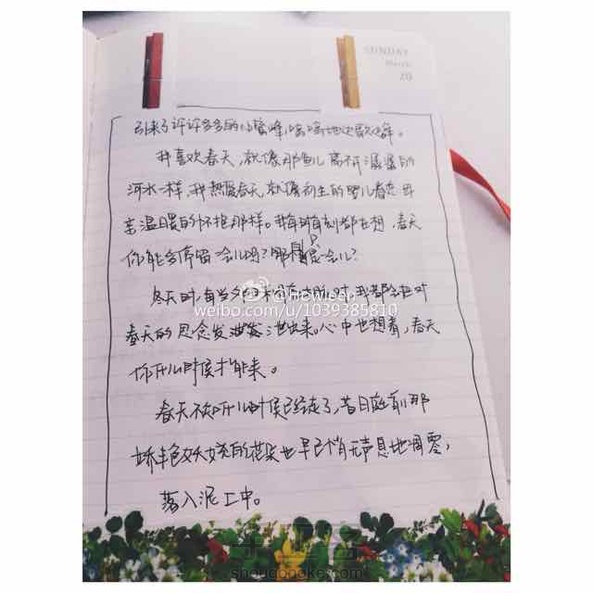 SUNDAY
March
20
引来了许许多多的小蜜蜂,嗡嗡地边歌边舞。
我喜欢春天,就像那鱼儿离不开潺潺的
河水一样,我热爱春天,就像初生的婴儿眷恋母
亲温暖的怀抱那样。我每时每刻都在想,春天
你能多停留一会儿吗?哪怕是一会儿?
冬天时,每当夕阳 时,我都会把对
春天的思念发泄出来。心中也想着,春天
你什么时候才能来。
春天不知什么时候已经走了,昔日庭前那
娇艳妖娆的花朵也早已悄无声息地凋零,
落入泥土中。
weibo.com/u/1039385810
手工客
shougongke.com